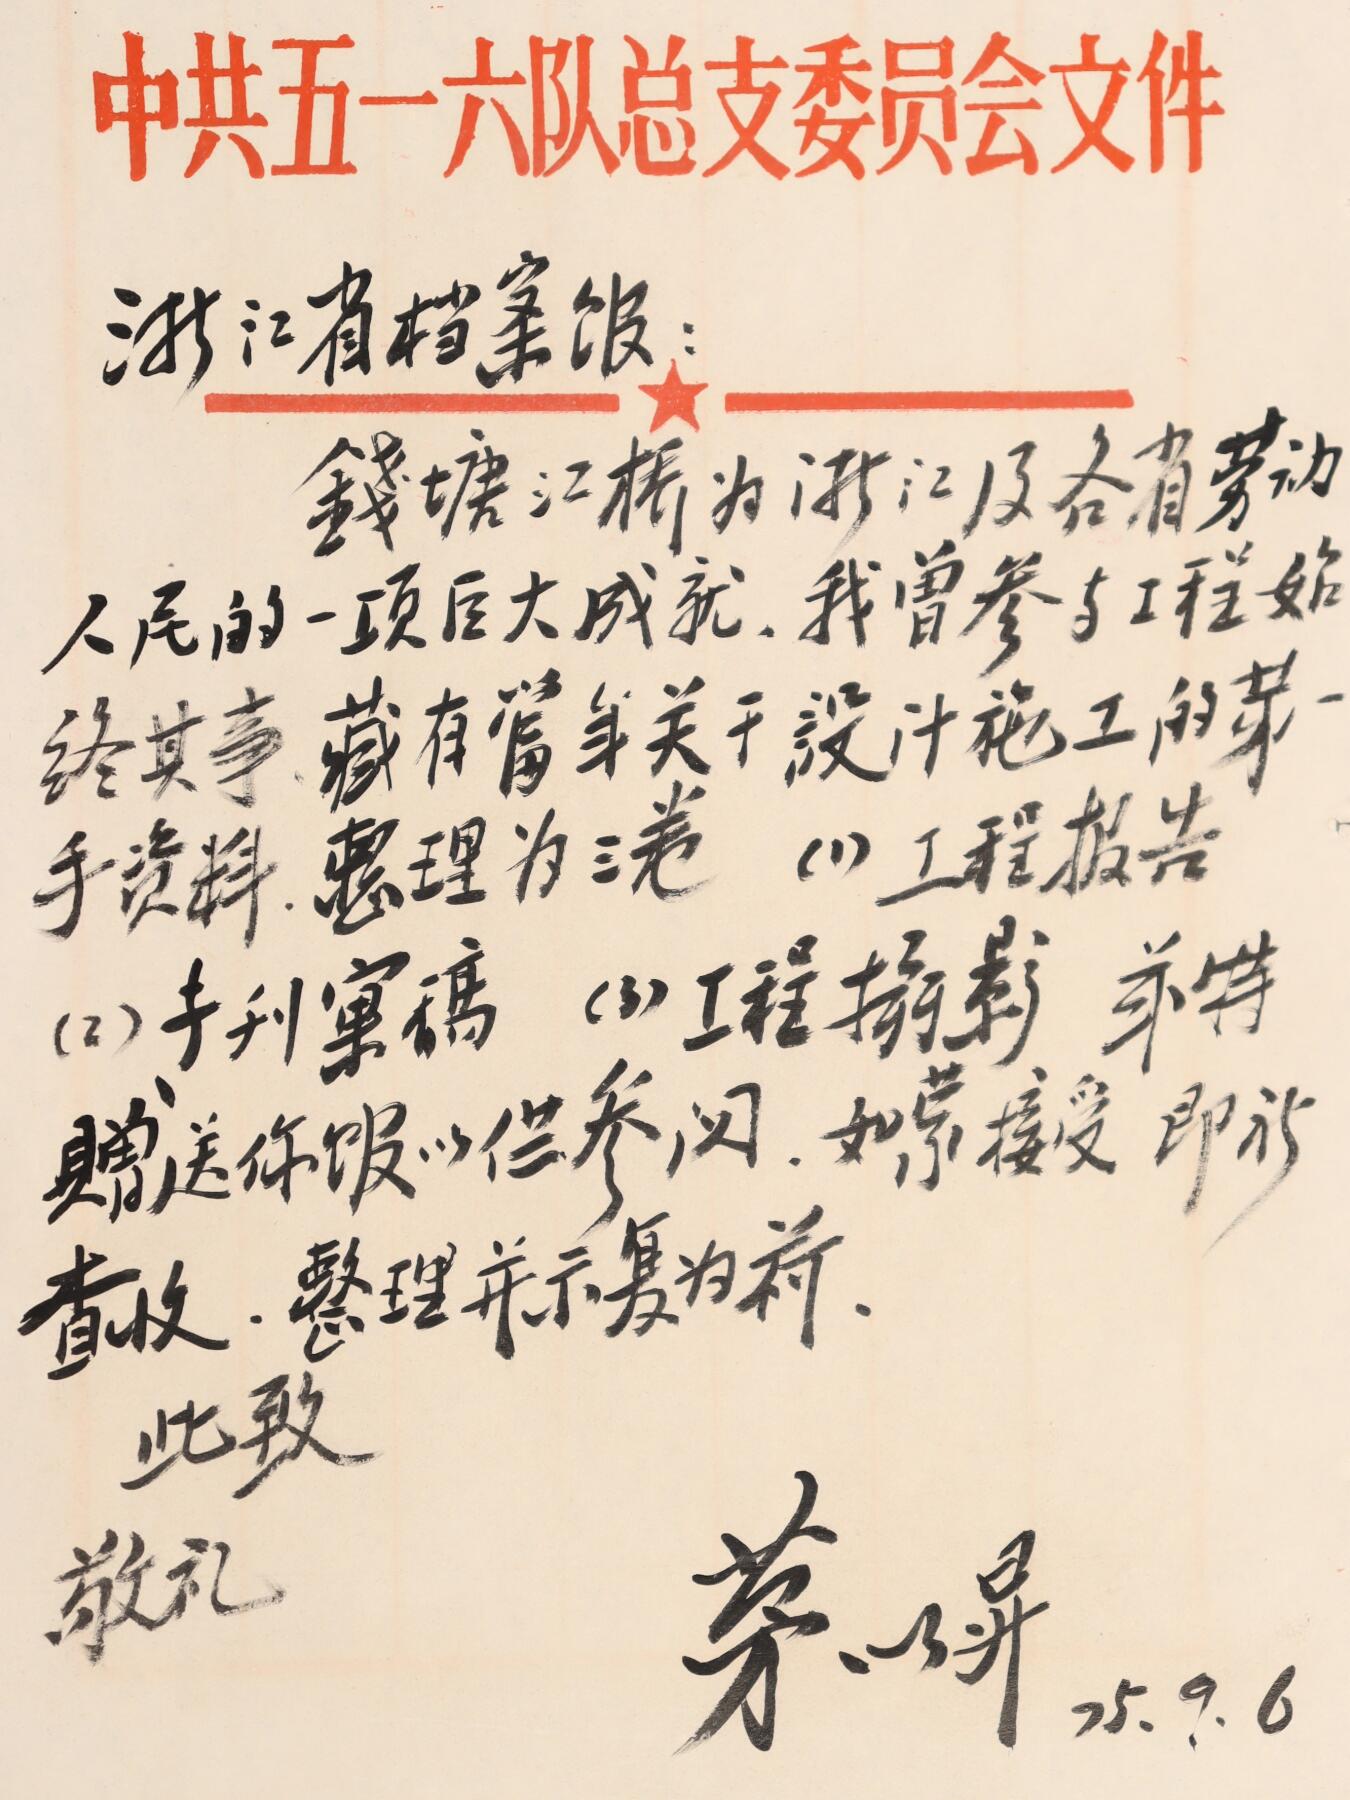 中共五一六队总支委员会文件
浙江省档案馆：
錢塘江桥为浙江及各省劳动
人民的一项巨大成就、我曾参与工程始
终其事、藏有當年关于設计施工的第一
手资料.整理为三卷 (1)工程报告
(2)刊稿 (3)工程摄影 兹特
贈送你馆以供参阅.如蒙接受 即祈
查收.整理并示复为荷.
此致
敬礼
茅以昇
75.9.6